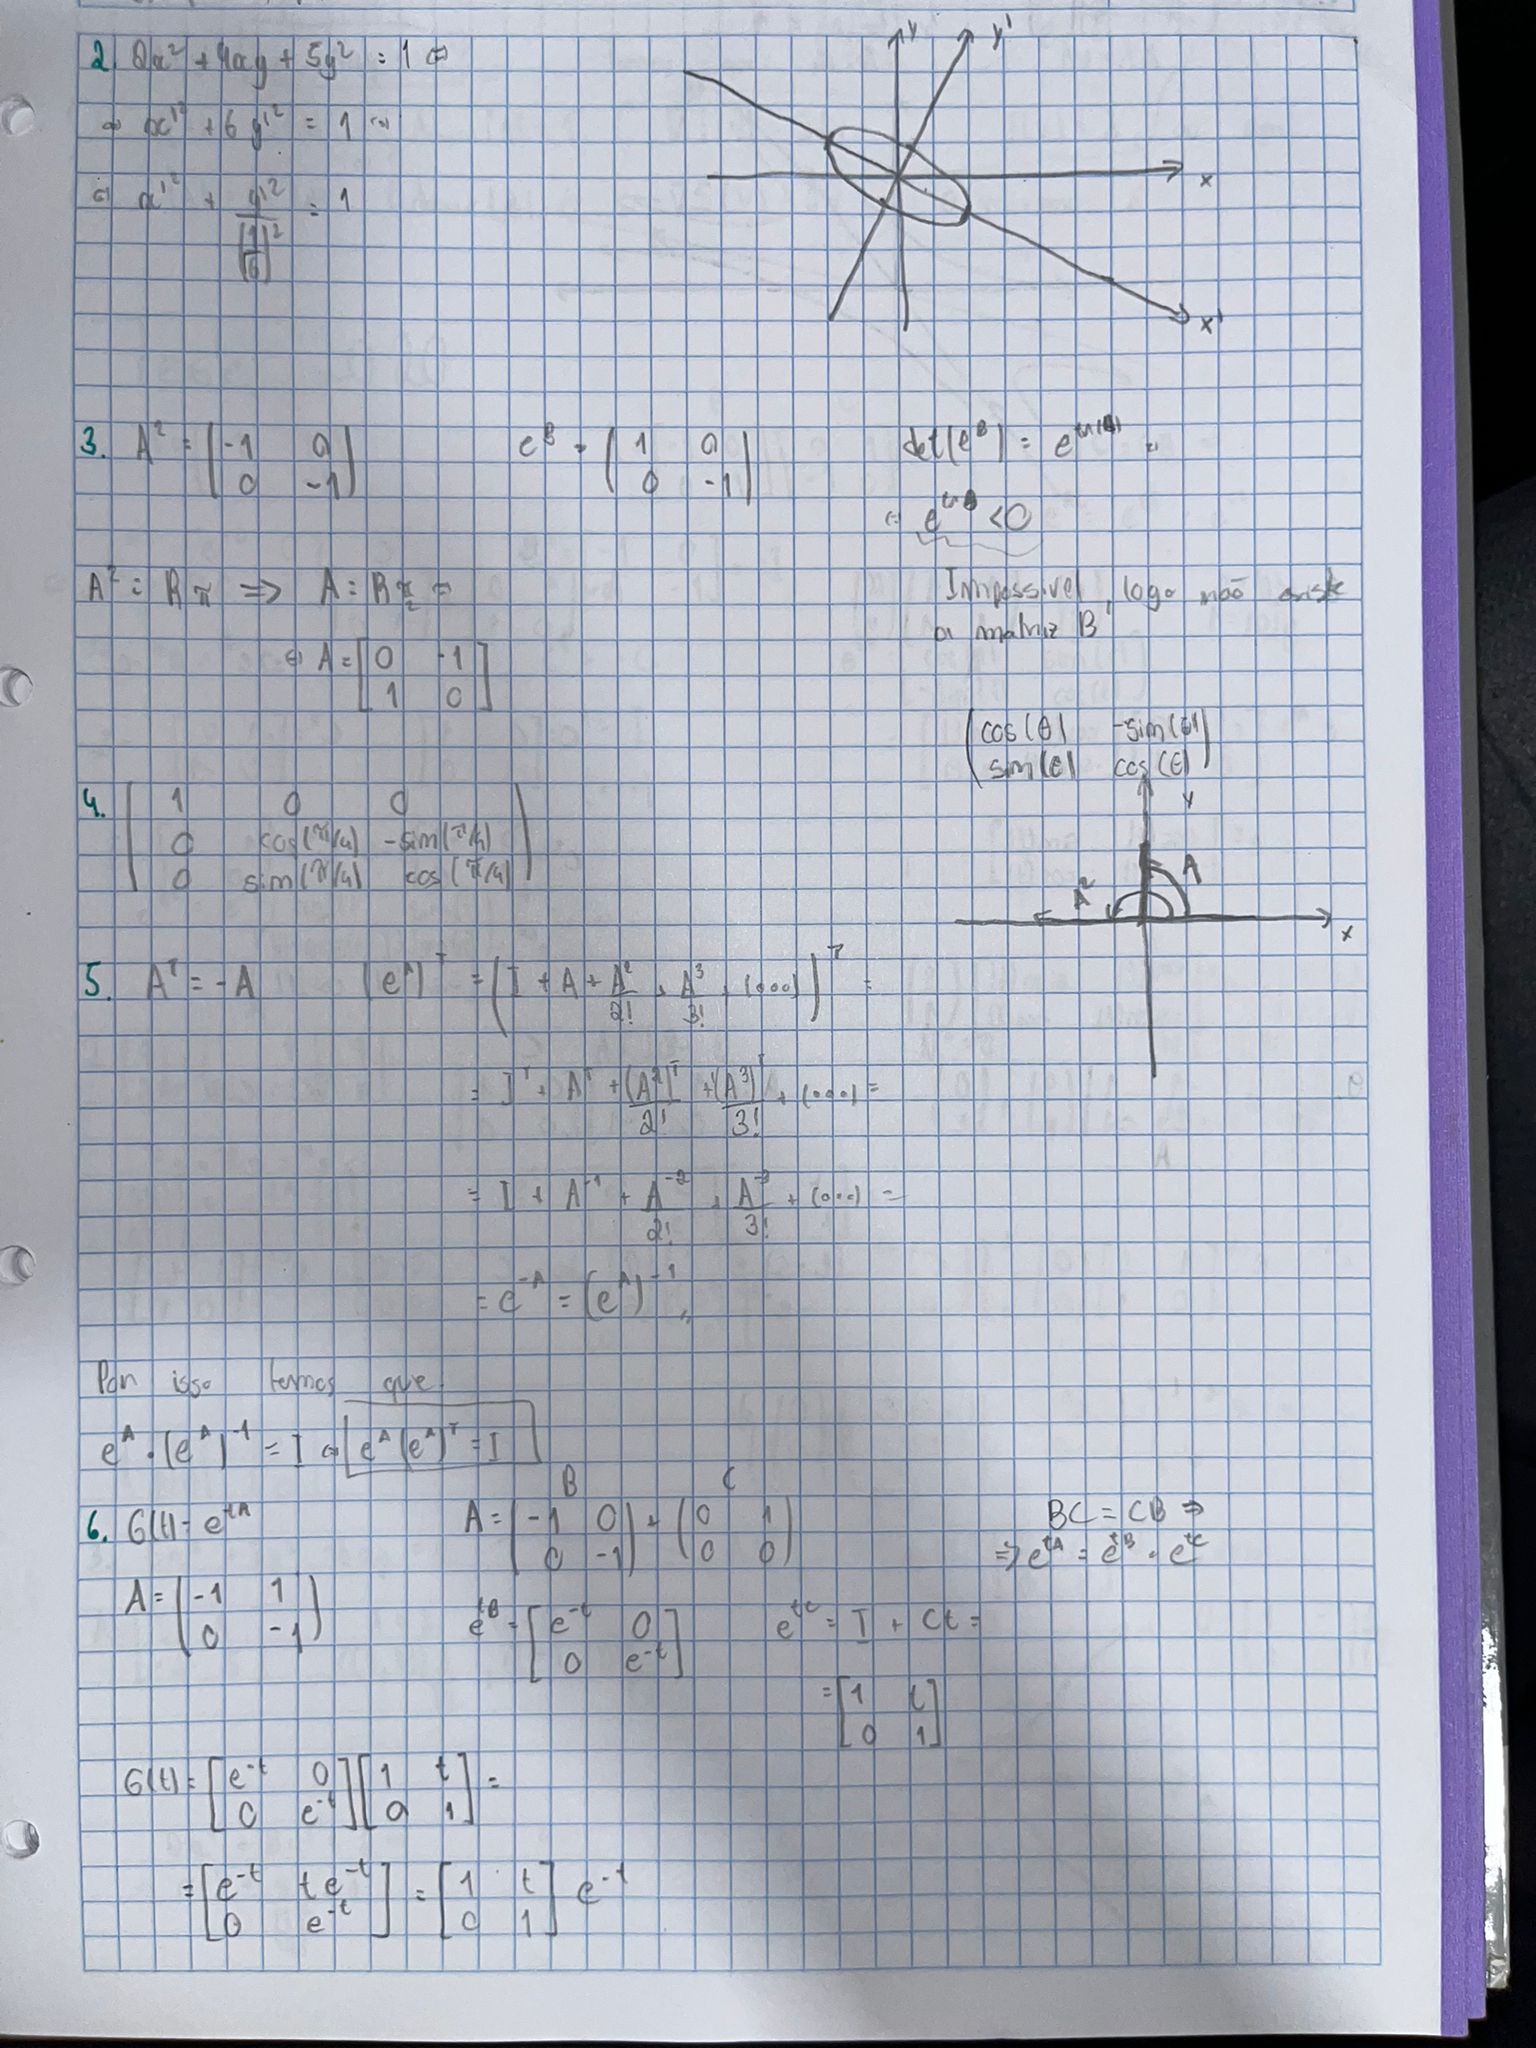 2. 2x² + 4xy + 5y² = 1 ⇔
⇔ x'² + 6y'² = 1 ⇔
⇔ x'² + y'²/(1/6)² = 1
y
y'
x
x'
3. A² = (-1 0; 0 -1)
e^B = (1 0; 0 -1)
det(e^B) = e^tr(B) ⇔
⇔ e^tr B < 0
Impossível, logo não existe
a matriz B
A² = Rπ ⇒ A = Rπ/2 ⇔
⇔ A = [0 -1; 1 0]
(cos(θ) -sin(θ); sin(θ) cos(θ))
4. (1 0 0; 0 cos(π/4) -sin(π/4); 0 sin(π/4) cos(π/4))
y
A
A²
x
5. A^T = -A
(e^A)^T = (I + A + A²/2! + A³/3! + (...))^T =
= I^T + A^T + (A²)^T/2! + (A³)^T/3! + (...) =
= I + A^-1 + A^-2/2! + A^-3/3! + (...) =
= e^-A = (e^A)^-1 //
Por isso temos que
e^A · (e^A)^-1 = I ⇔ e^A (e^A)^T = I
6. G(t) = e^tA
B C
A = (-1 0; 0 -1) + (0 1; 0 0)
BC = CB ⇒
⇒ e^tA = e^tB · e^tC
A = (-1 1; 0 -1)
e^tB = [e^-t 0; 0 e^-t]
e^tC = I + Ct =
= [1 t; 0 1]
G(t) = [e^-t 0; 0 e^-t][1 t; 0 1] =
= [e^-t te^-t; 0 e^-t] = [1 t; 0 1] e^-t